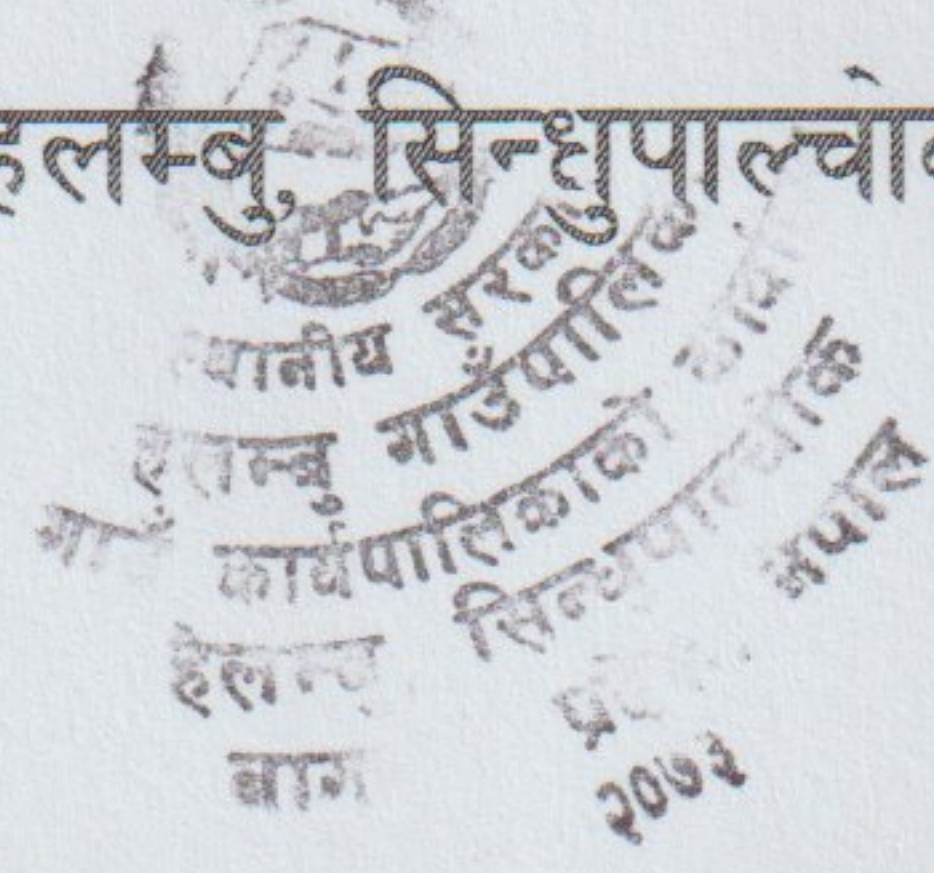 हेलम्बु, सिन्धुपाल्चोक
स्थानीय सरकार
हेलम्बु गाउँपालिका
गाउँ कार्यपालिकाको कार्यालय
हेलम्बु सिन्धुपाल्चोक
नेपाल
२०७३